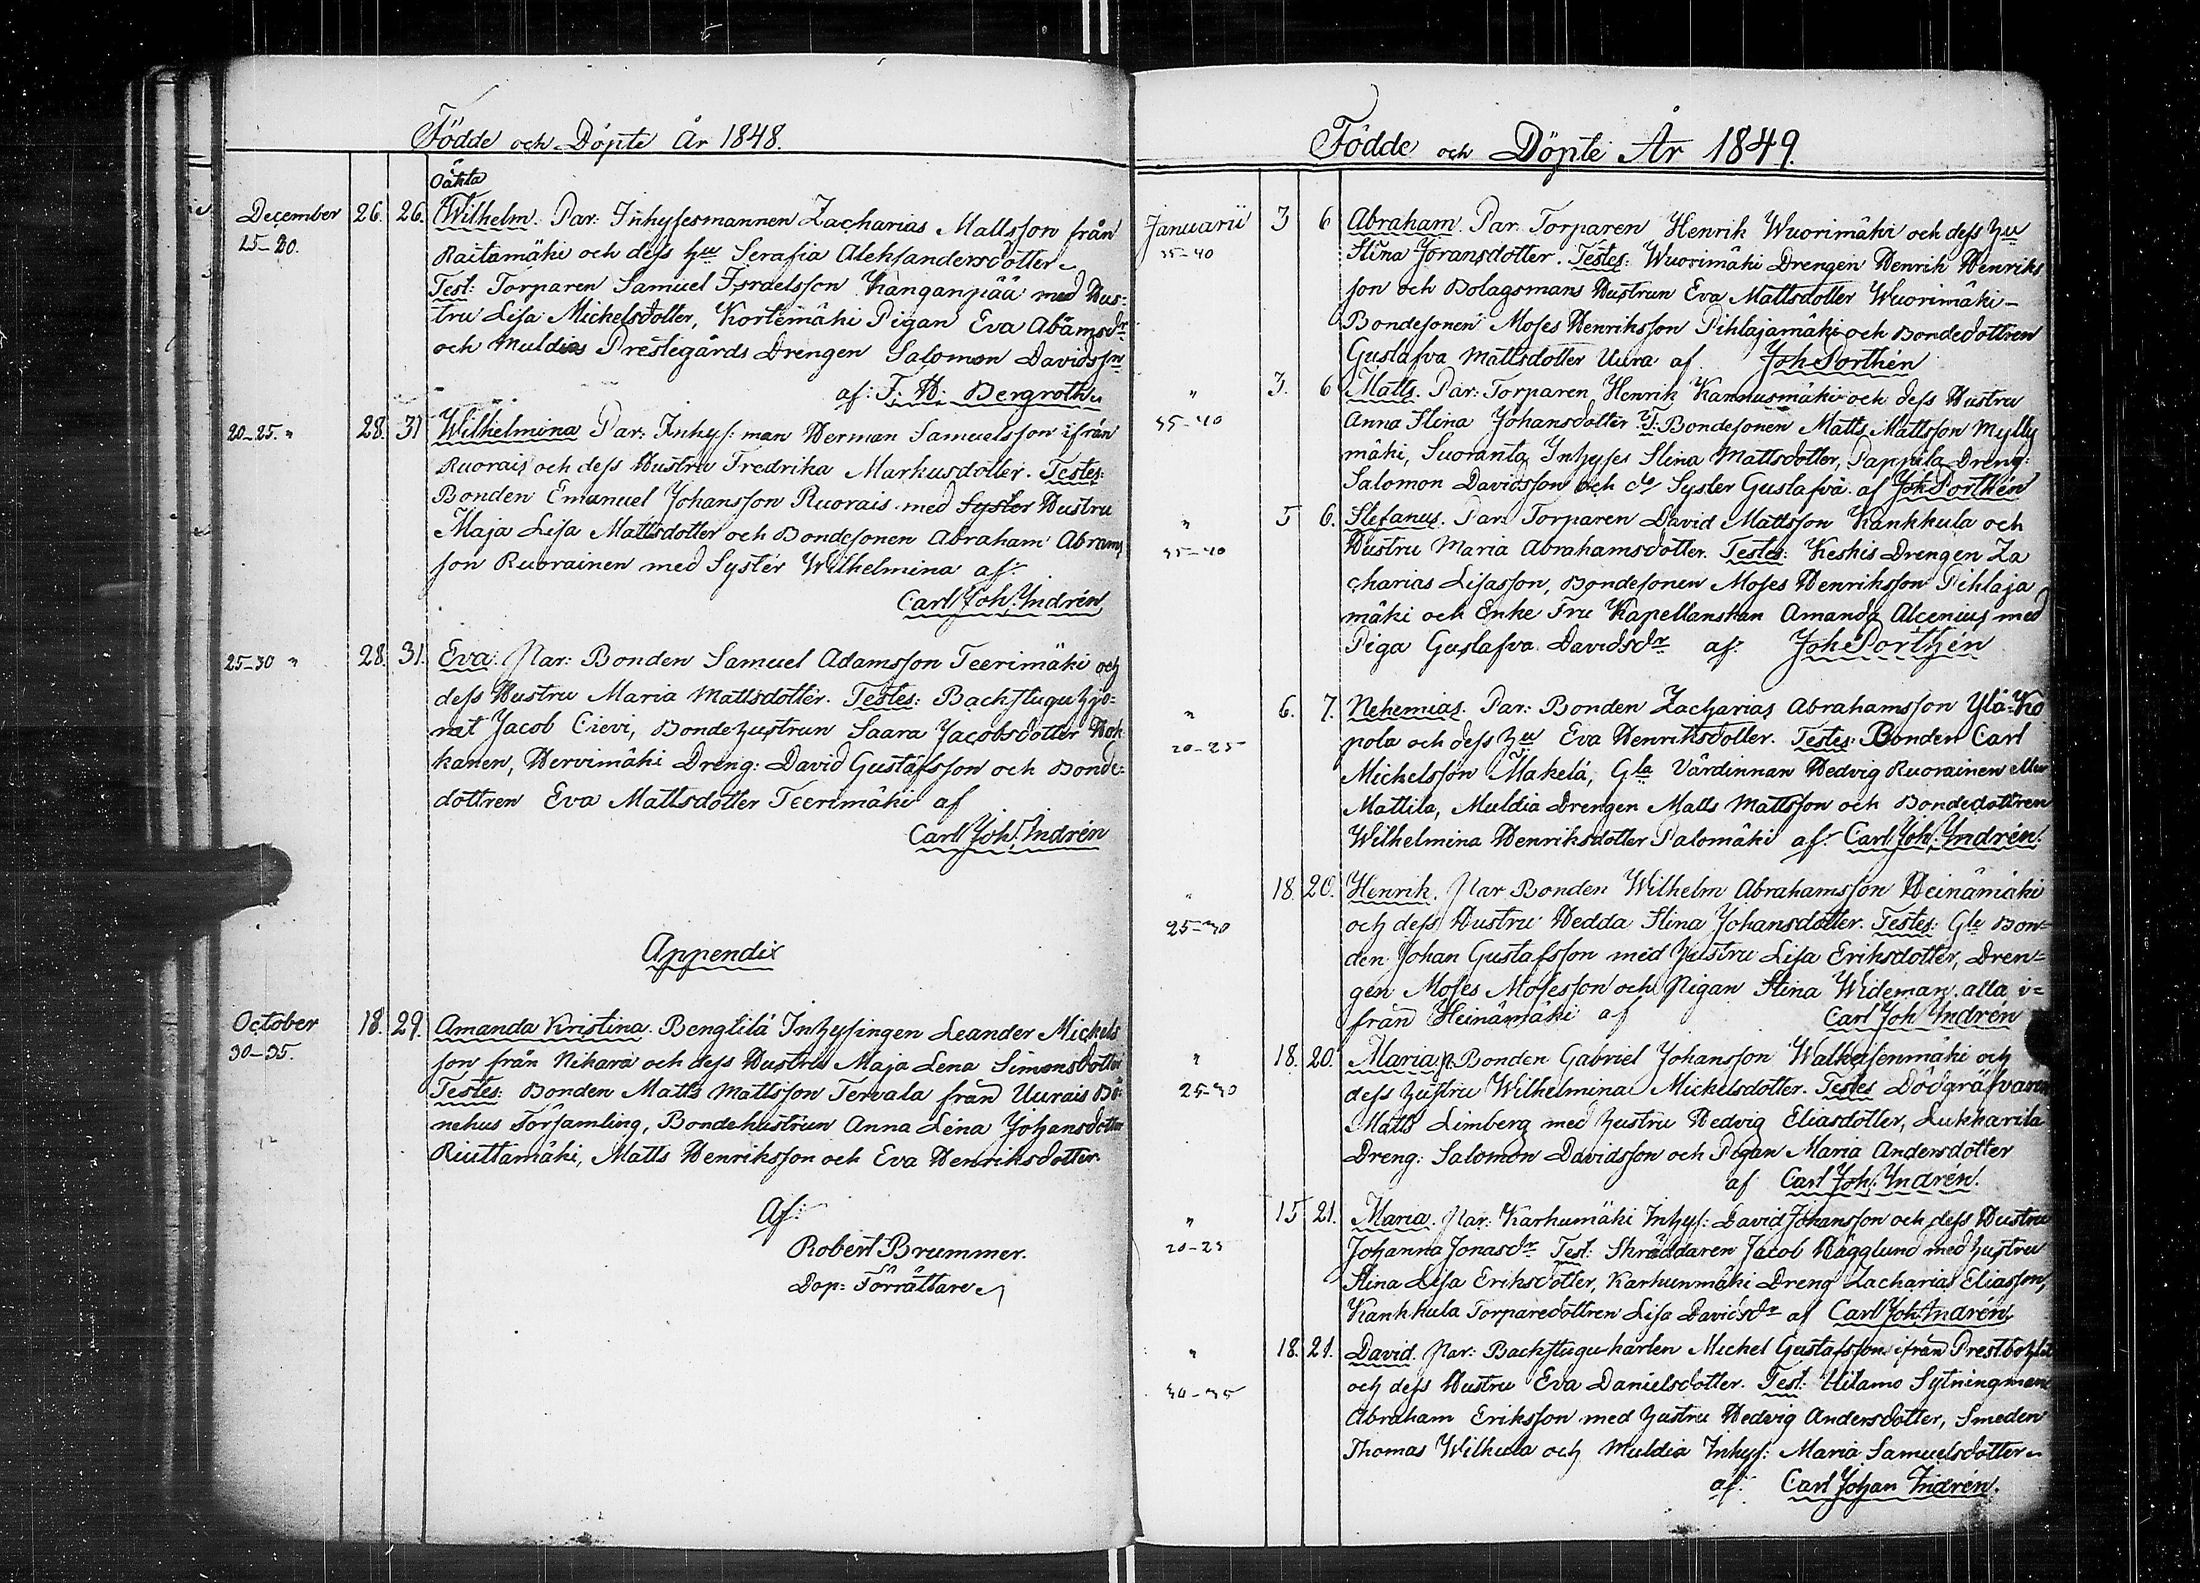 Födde och Döpte År 1848.
Oäkta
December 26. 26. Wilhelm. Par: Inhysesmannen Zacharias Mattsson från
15-20. Raitamäki och dess hu Serafia Aleksandersdotter
Test: Torparen Samuel Israelsson Kanganpää med Hus-
tru Lisa Michelsdotter, Kortemäki Pigan Eva Abramsdr
och Muldias Prestegårds Drengen Salomon Davidsson
af: F: H: Bergroth
20-25. " 28. 31 Wilhelmina Par: Inhys: man Herman Samuelsson ifrån
Ruorais och dess Hustru Fredrika Markusdotter. Testes:
Bonden Emanuel Johansson Ruorais med Syster Hustru
Maja Lisa Mattsdotter och Bondesonen Abraham Abrams
son Ruorainen med Syster Wilhelmina af:
Carl Joh: Indrén
25-30 " 28. 31. Eva. Par: Bonden Samuel Adamsson Teerimäki och
dess Hustru Maria Mattsdotter. Testes: Backstuguhjo-
net Jacob Cievi, Bondehustrun Saara Jacobsdotter Hok
kanen, Hervimäki Dreng: David Gustafsson och Bonde-
dottren Eva Mattsdotter Teerimäki af
Carl Joh: Indrén
Appendix
October 18. 29. Amanda Kristina. Bengtilä Inhysingen Leander Michels
30-35. son från Nikara och dess Hustru Maja Lena Simonsdotter
Testes: Bonden Matts Mattsson Tervala från Uurais Bö-
nehus Församling, Bondehustrun Anna Lena Johansdotter
Riuttamäki, Matts Henriksson och Eva Henriksdotter.
Af:
Robert Brummer.
Dop: Förrättare
Födde och Döpte År 1849.
Januarii 3 6 Abraham. Par. Torparen Henrik Wuorimäki och dess hu
35-40 Stina Joransdotter. Testes: Wuorimäki Drengen Henrik Henriks
son och Bolagsmans Hustrun Eva Mattsdotter Wuorimäki-
Bondesonen Moses Henriksson Pihlajamäki och Bondedottren
Gustafva Mattsdotter Uura af Joh Porthén
" 3. 6 Matts. Par: Torparen Henrik Kannusmäki och dess Hustru
35-40 Anna Stina Johansdotter T: Bondesonen Matts Mattsson Mylly
mäki, Suoranta Inhyses Stina Mattsdotter, Pappila Dreng:
Salomon Davidsson och do Syster Gustafva af Joh Porthén
" 5 6. Stefanus. Par: Torparen David Mattsson Kankkula och
35-40 Hustru Maria Abrahamsdotter. Testes: Keskis Drengen Za
charias Lisasson, Bondesonen Moses Henriksson Pihlaja
mäki och Enke Fru Kapellanskan Amanda Alcenius med
Piga Gustafva Davidsdr af: Joh Porthén
" 6. 7. Nehemias. Par: Bonden Zacharias Abrahamsson Ylä-Ko
20-25 pola och dess hu Eva Henriksdotter. Testes: Bonden Carl
Michelsson Makelä, Gla Värdinnan Hedvig Ruorainen eller
Mattila, Muldia Drengen Matts Mattsson och Bondedottren
Wilhelmina Henriksdotter Palomäki af: Carl Joh: Indrén.
" 18. 20. Henrik. Par Bonden Wilhelm Abrahamsson Heinämäki
25-30 och dess Hustru Hedda Stina Johansdotter. Testes: Gle Bon-
den Johan Gustafsson med Hustru Lisa Eriksdotter, Dren-
gen Moses Mosesson och Pigan Stina Wideman. alla i-
från Heinämäki af Carl Joh Indrén
" 18. 20. Maria p: Bonden Gabriel Johansson Walkeisenmäki och
25-30 dess hustru Wilhelmina Mickelsdotter. Testes Dödgräfvaren
Matts Limberg med hustru Hedvig Eliasdotter, Lukkarila
Dreng: Salomon Davidsson och Pigan Maria Andersdotter
af Carl Joh: Indrén.
" 15 21. Maria. Par: Karhumäki Inhys: David Johansson och dess Hustru
20-25 Johanna Jonasdr Test: Skräddaren Jacob Hägglund med hustru
Stina Lisa Eriksdotter, Karhunmäki Dreng Zacharias Eliasson,
Kankkula Torparedottren Lisa Davidsdr af Carl Joh: Indrén,
" 18. 21. David. Par: Backstugu-karlen Michel Gustafsson ifrån Prestbohlet
30-35 och dess Hustru Eva Danielsdotter. Test: Uitamo Sytningman
Abraham Eriksson med hustru Hedvig Andersdotter, Smeden
Thomas Wilhula och Muldia Inhys: Maria Samuelsdotter
af: Carl Johan Indrén.